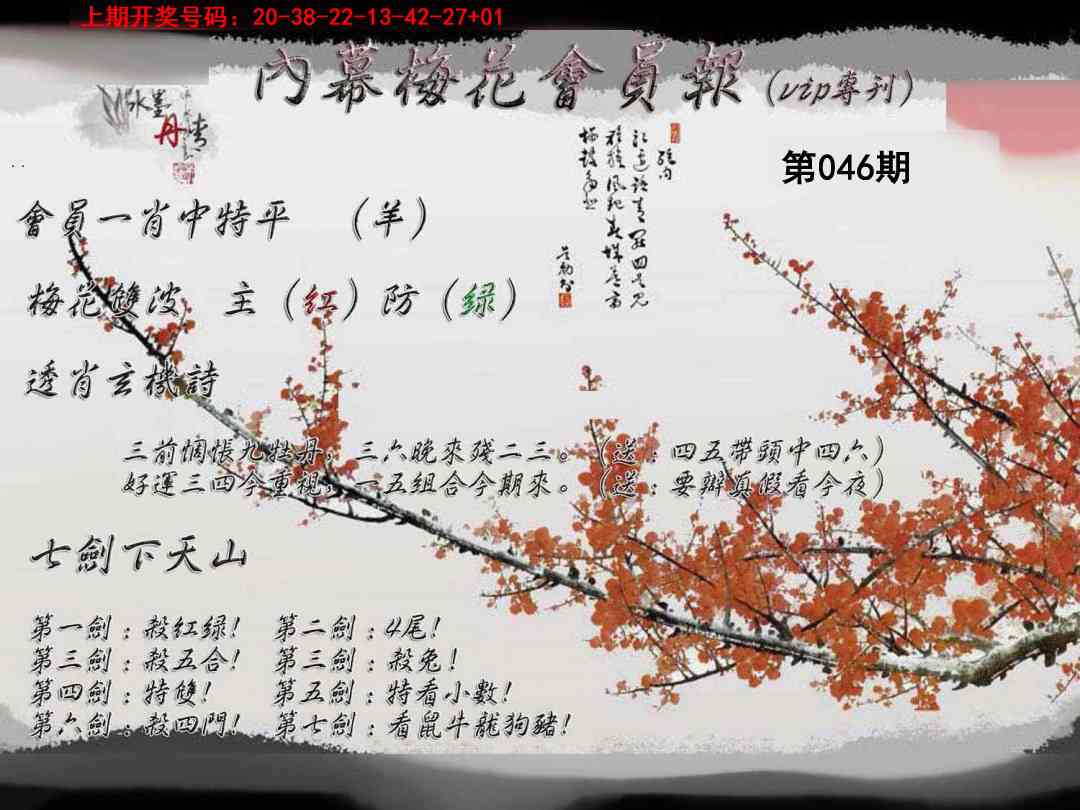 上期开奖号码：20-38-22-13-42-27+01
內幕梅花會員報（vip專刊）
水墨丹青
第046期
會員一肖中特平　（羊）
梅花雙波　主（红）防（绿）
透肖玄機詩
三前惆悵九牡丹，三六晚來殘二三。（送：四五帶頭中四六）
好運三四今重視，一五組合今期來。（送：要辦真假看今夜）
七劍下天山
第一劍：殺红绿！　第二劍：4尾！
第三劍：殺五合！　第三劍：殺兔！
第四劍：特雙！　第五劍：特看小數！
第六劍：殺四門！　第七劍：看鼠牛龍狗豬！